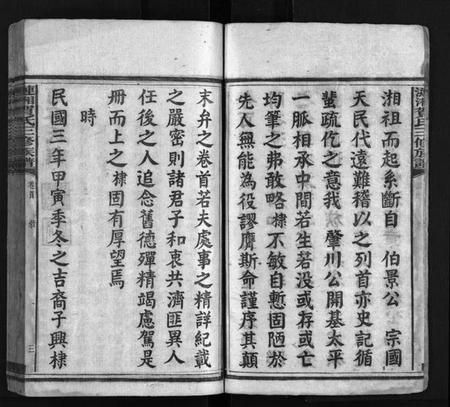 湘祖而起系斷自　伯景公　宗國
天民代遠難稽以之列首亦史記循
蜚疏仡之意我　肇川公開基太平
一脈相承中間若生若没或存或亡
均筆之弗敢略棣不敏自慙固陋於
先人無能為役謬膺斯命謹序其顛
末弁之卷首若夫處事之精詳紀載
之嚴密則諸君子和衷共濟匪異人
任後之人追念舊德殫精竭慮駕是
册而上之棣固有厚望焉
時
民國三年甲寅季冬之吉裔子興棣
三修族譜
卷首
三